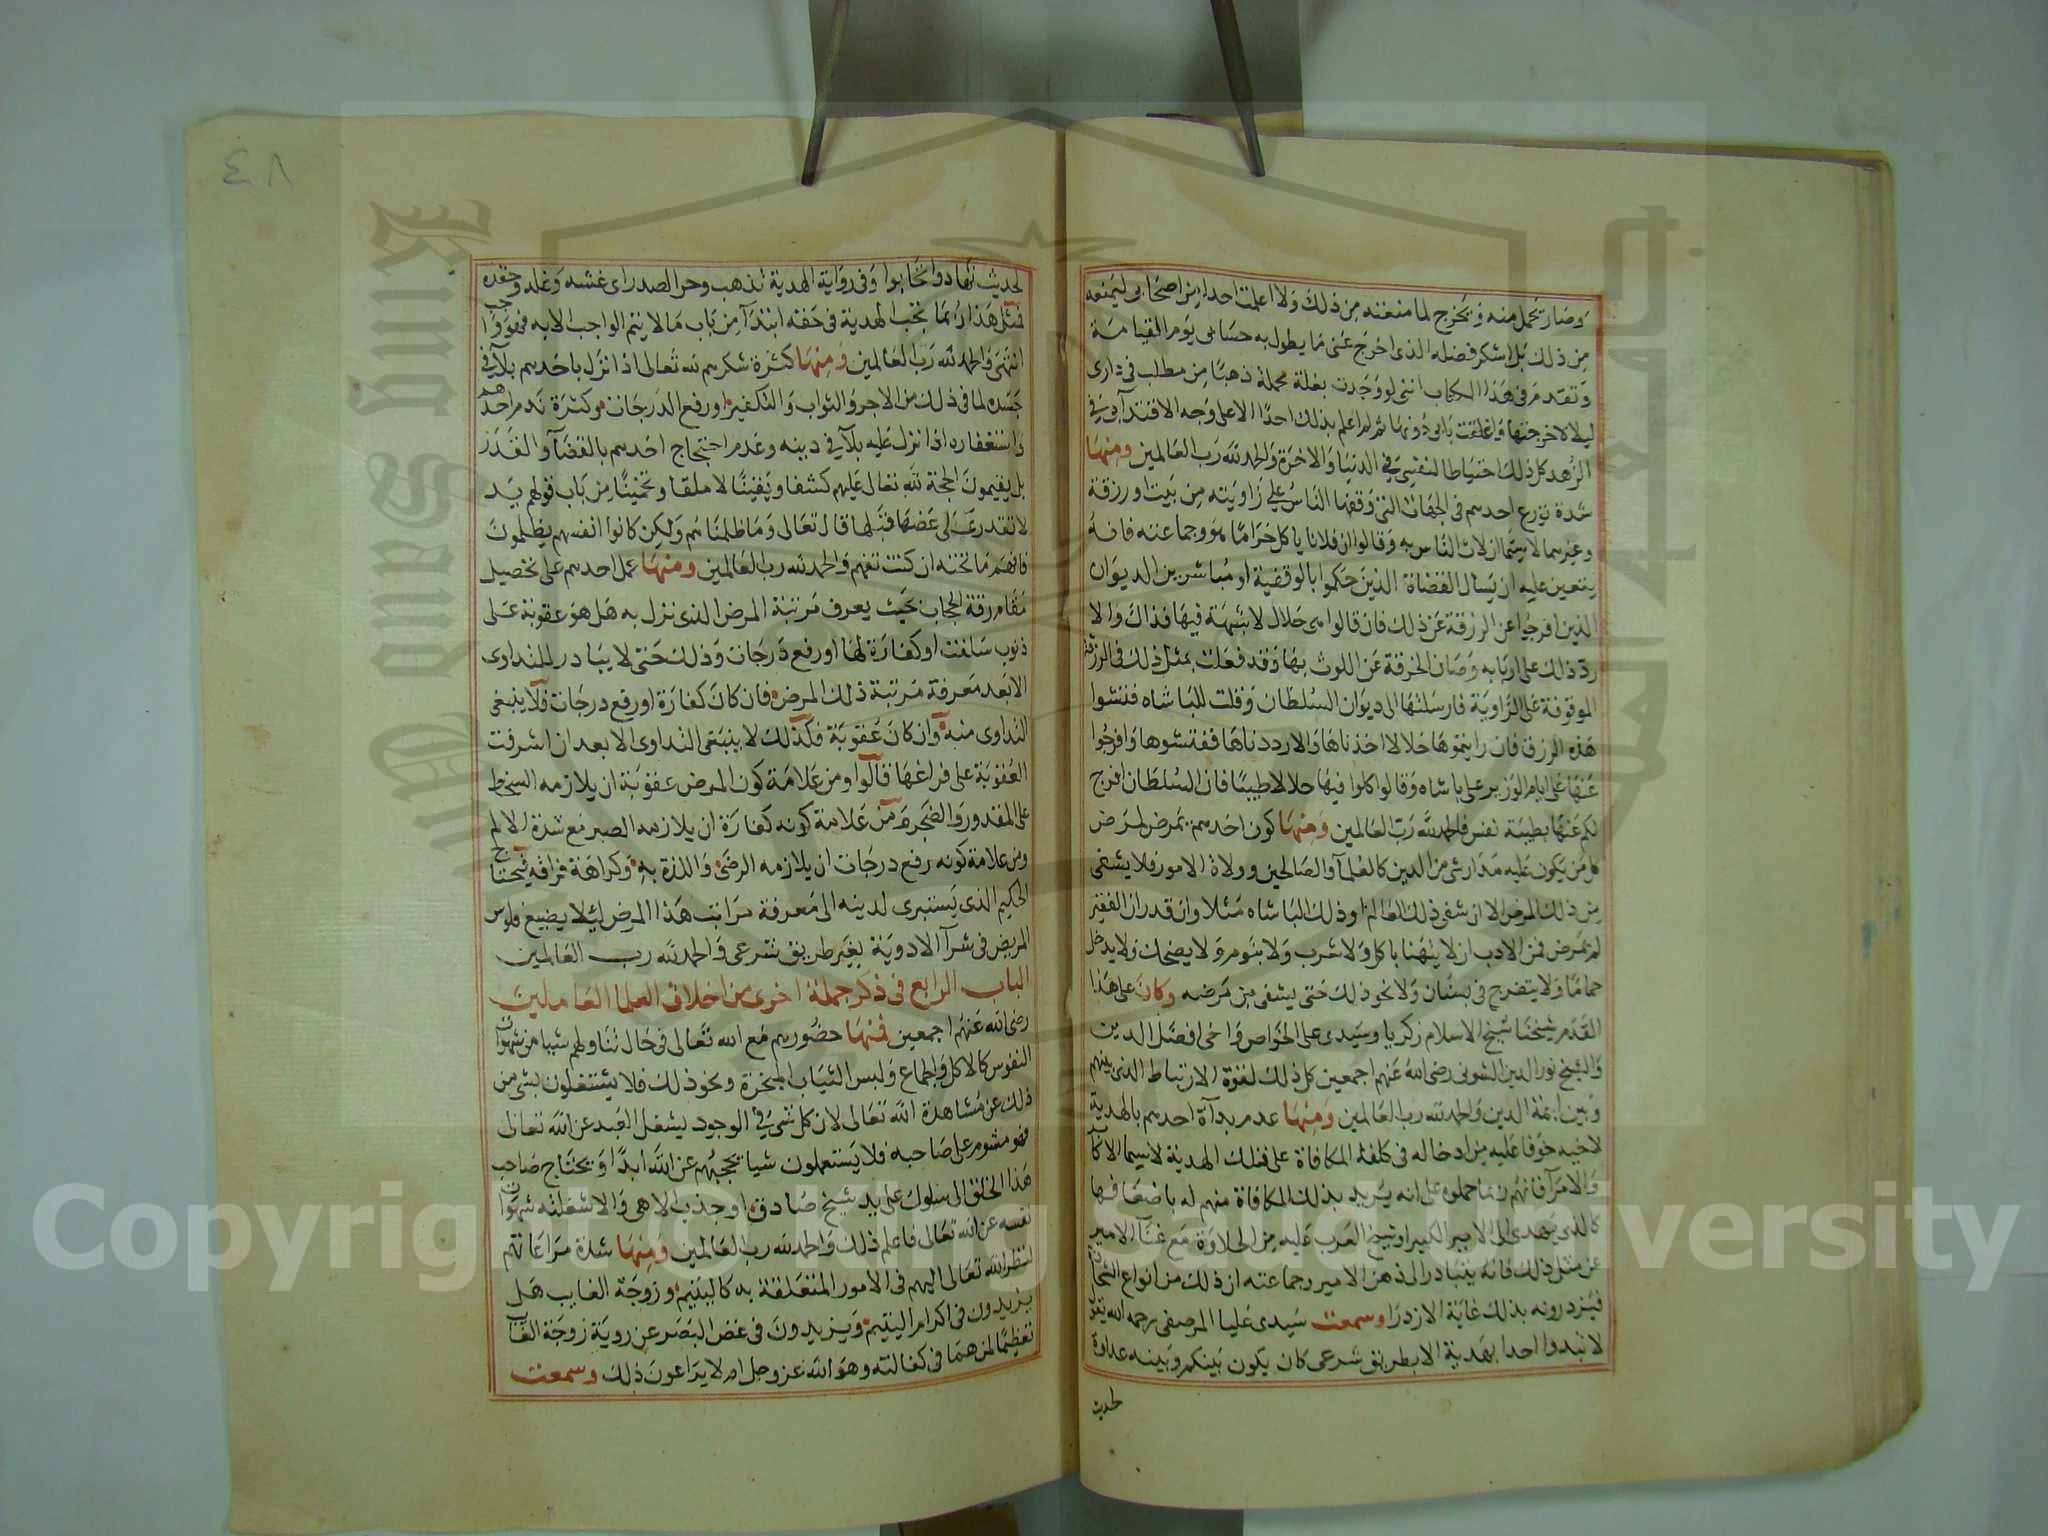 وصار يحمل منه ويخرج لما منعته من ذلك ولا اعلمت احدا من اصحابى ليمنعه
من ذلك بل اشكر فضله الذى اخرج عنى ما يطول به حسابى يوم القيامة
وتقدم فى هذا الكتاب اننى لو وجدت بغلة محملة ذهبا من مطلب فى دارى
ليلا لاخرجتها واغلقت بابى دونها ثم لم اعلم بذلك احدا الا على وجه الاقتدآء بى فى
الزهد كل ذلك احتياطا لنفسى فى الدنيا والاخرة والحمد لله رب العالمين ومنها
شدة تورع احدهم فى الجهات التى وقفها الناس على زاويته من بيت او رزقة
وغيرهما لاسيما ان لاث الناس به وقالوا ان فلانا ياكل حراما هو وجماعته فانه
يتعين عليه ان يسال القضاة الذين حكموا بالوقفية او مباشرين الديوان
الذين افرجوا عن الرزقة عن ذلك فان قالوا هى حلال لا شبهة فيها فذاك والا
رد ذلك على اربابه وصان الخرقة عن اللوث بها وقد فعلت بمثل ذلك فى الرزقة
الموقوفة على الزاوية فارسلتها الى ديوان السلطان وقلت للباشاه فتشوا
هذه الرزق فان رايتموها حلالا اخذناها والا رددناها ففتشوها وافرجوا
عنها على ايام الوزير على باشاه وقالوا كلوا فيها حلالا طيبا فان السلطان افرج
لكم عنها بطيبة نفس فالحمد لله رب العالمين ومنها كون احدهم يمرض لمرض
كل من يكون عليه مدار شى من الدين كالعلمآ والصالحين وولاة الامور فلا يشفى
من ذلك المرض الا ان شفى ذلك العالم او ذلك الباشاه مثلا وان قدر ان الفقير
لم يمرض فمن الادب ان لا يتهنا باكل ولا شرب ولا بنوم ولا يضحك ولا يدخل
حماما ولا يتفرج فى بستان ولا نحو ذلك حتى يشفى من مرضه وكان على هذا
القدم شيخنا شيخ الاسلام زكريا وسيدى على الخواص واخى افضل الدين
والشيخ نور الدين الشونى رضى الله عنهم اجمعين كل ذلك لقوة الارتباط الذى بينهم
وبين ايمة الدين والحمد لله رب العالمين ومنها عدم بدآة احدهم بالهدية
لاخيه خوفا عليه من ادخاله فى كلفة المكافاة على تلك الهدية لاسيما الاكابر
والامرآ فانهم ربما حملوه على انه يريد بذلك المكافاة منهم له باضعافها
كالذى يهدى الى الامير الكبير او شيخ العرب علبه من الحلاوة مع غنآ الامير
عن مثل ذلك فانه يتبادر الى ذهن الامير وجماعته ان ذلك من انواع
فيزدرونه بذلك غاية الازدرآ وسمعت سيدى عليا المرصفى رحمه الله يقول
لا تبدوا احدا بهدية الا بطريق شرعى كان يكون بينكم وبينه عداوة
لحديث
لحديث تهادوا تحابوا وفى رواية الهدية تذهب وحر الصدر اى غشه وغله وحقده
فمثل هذا ربما تجب الهدية فى حقه ابتدآ من باب ما لا يتم الواجب الا به فهو واجب
انتهى والحمد لله رب العالمين ومنها كثرة شكرهم لله تعالى اذا نزل باحدهم بلآء فى
جسده لما فى ذلك من الاجر والثواب والتكفير او رفع الدرجات وكثرة ندم احدهم
واستغفاره اذا نزل عليه بلآء فى دينه وعدم احتجاج احدهم بالقضآ والقدر
بل يقيمون الحجة لله تعالى عليهم كشفا ويقينا لا ملقا وتخمينا من باب قولهم يد
لا تقدر على عضها قبلها قال تعالى وما ظلمناهم ولكن كانوا انفسهم يظلمون
فافهم ما تحته ان كنت تفهم والحمد لله رب العالمين ومنها عمل احدهم على تحصيل
مقام رقة الحجاب بحيث يعرف مرتبة المرض الذى نزل به هل هو عقوبة على
ذنوب سلفت او كفارة لها او رفع درجات وذلك حتى لا يبادر للتداوى
الا بعد معرفة مرتبة ذلك المرض فان كان كفارة او رفع درجات فلا ينبغى
التداوى منه وان كان عقوبة فكذلك لا ينبغى التداوى الا بعد ان اشرفت
العقوبة على فراغها قالوا ومن علامة كون المرض عقوبة ان يلازمه السخط
على المقدور والضجر ومن علامة كونه كفارة ان يلازمه الصبر مع شدة الالم
ومن علامة كونه رفع درجات ان يلازمه الرضى واللذة به وكراهة فراقه فيحتاج
الحكيم الذى يستبرى لدينه الى معرفة مراتب هذا المرض ليلا يضيع فلوس
المريض فى شرآ الادوية بغير طريق شرعى والحمد لله رب العالمين
الباب الرابع فى ذكر جملة اخرى من اخلاق العلما العاملين
رضى الله عنهم اجمعين فمنها حضورهم مع الله تعالى فى حال تناولهم شيئا من شهوات
النفوس كالاكل والجماع ولبس الثياب المبخرة ونحو ذلك فلا يشتغلون بشى من
ذلك عن مشاهدة الله تعالى لان كل شى فى الوجود يشغل العبد عن الله تعالى
فهو مشوم على صاحبه فلا يستعملون شيا يحجبهم عن الله ابدا ويحتاج صاحب
هذا الخلق الى سلوك على يد شيخ صادق او جذب الاهى والا شغلته شهوات
نفسه عن الله تعالى فاعلم ذلك والحمد لله رب العالمين ومنها شدة مراعاتهم
لنظر الله تعالى اليهم فى الامور المتعلقة به كاليتيم وزوجة الغايب هل
يزيدون فى اكرام اليتيم ويزيدون فى غض البصر عن روية زوجة الغايب
تعظيما لمن هما فى كفالته وهو الله عز وجل ام لا يراعون ذلك وسمعت
٤٨
Copyright © King Saud University
King Saud University